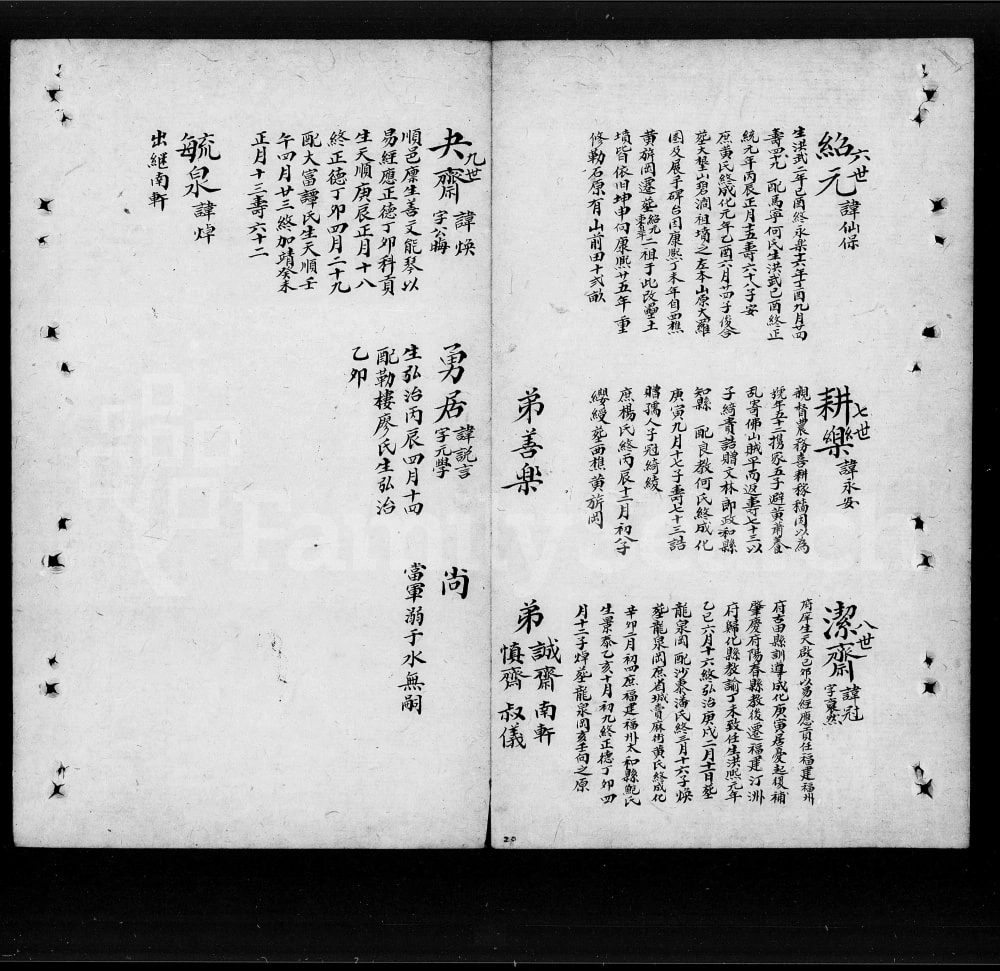 六世
紹元 諱仙保
生洪武二年己酉終永樂十六年丁酉九月廿四
壽四九 配馬寧何氏生洪武己酉終正
統元年丙辰正月十五壽六十八子安
庶黃氏終成化元年乙酉六月廿四子俊合
塟大墾山碧澗祖墳之左本山原大羅
圍及展手碑台因康熙丁未年自四樵
黃旂岡遷塟紹元二祖于此改壘土
墳皆依旧坤申向康熙廿五年重
修勒石原有山前田十弍畝
七世
耕樂 諱永安
觀督農務喜耕稼穡因以為
號年五十二携家五子避黃蕭養
乱寄佛山賊平而返壽七十三以
子綺貴誥贈文林郎政和縣
知縣 配良教何氏終成化
庚寅九月十七子壽七十三誥
贈孺人子冠綺綾
庶楊氏終丙辰十二月初八子
纓綬塟西樵黃旂岡
弟善樂
八世
潔齋 諱冠
府庠生天啟己卯以易經應貢任福建福州
府古田縣訓導成化庚寅居憂起後補
肇慶府陽春縣教後遷福建汀洲
府歸化縣教諭丁未致任生洪熙元年
乙巳六月十六終弘治庚戌二月十一日塟
龍泉岡 配沙泰潘氏終三月十六子煥
塟龍泉岡庶省城賣麻街黃氏終成化
辛卯二月初四庶福建福州太和縣鮑氏
生景泰乙亥十月初九終正德丁卯四
月十二子焯塟龍泉岡亥壬向之原
弟 誠齋 南軒
慎齊 叔儀
九世
夬齋 諱煥
字公晦
順邑廩生善文能琴以
易經應正德丁卯科貢
生天順庚辰正月十八
終正德丁卯四月二十九
配大富譚氏生天順壬
午四月廿三終加靖癸未
正月十三壽六十二
毓泉 諱焯
出継南軒
勇居 諱説言
字元學
生弘治丙辰四月十四
配勒樓廖氏生弘治
乙卯
尚
當軍溺于水無嗣
20